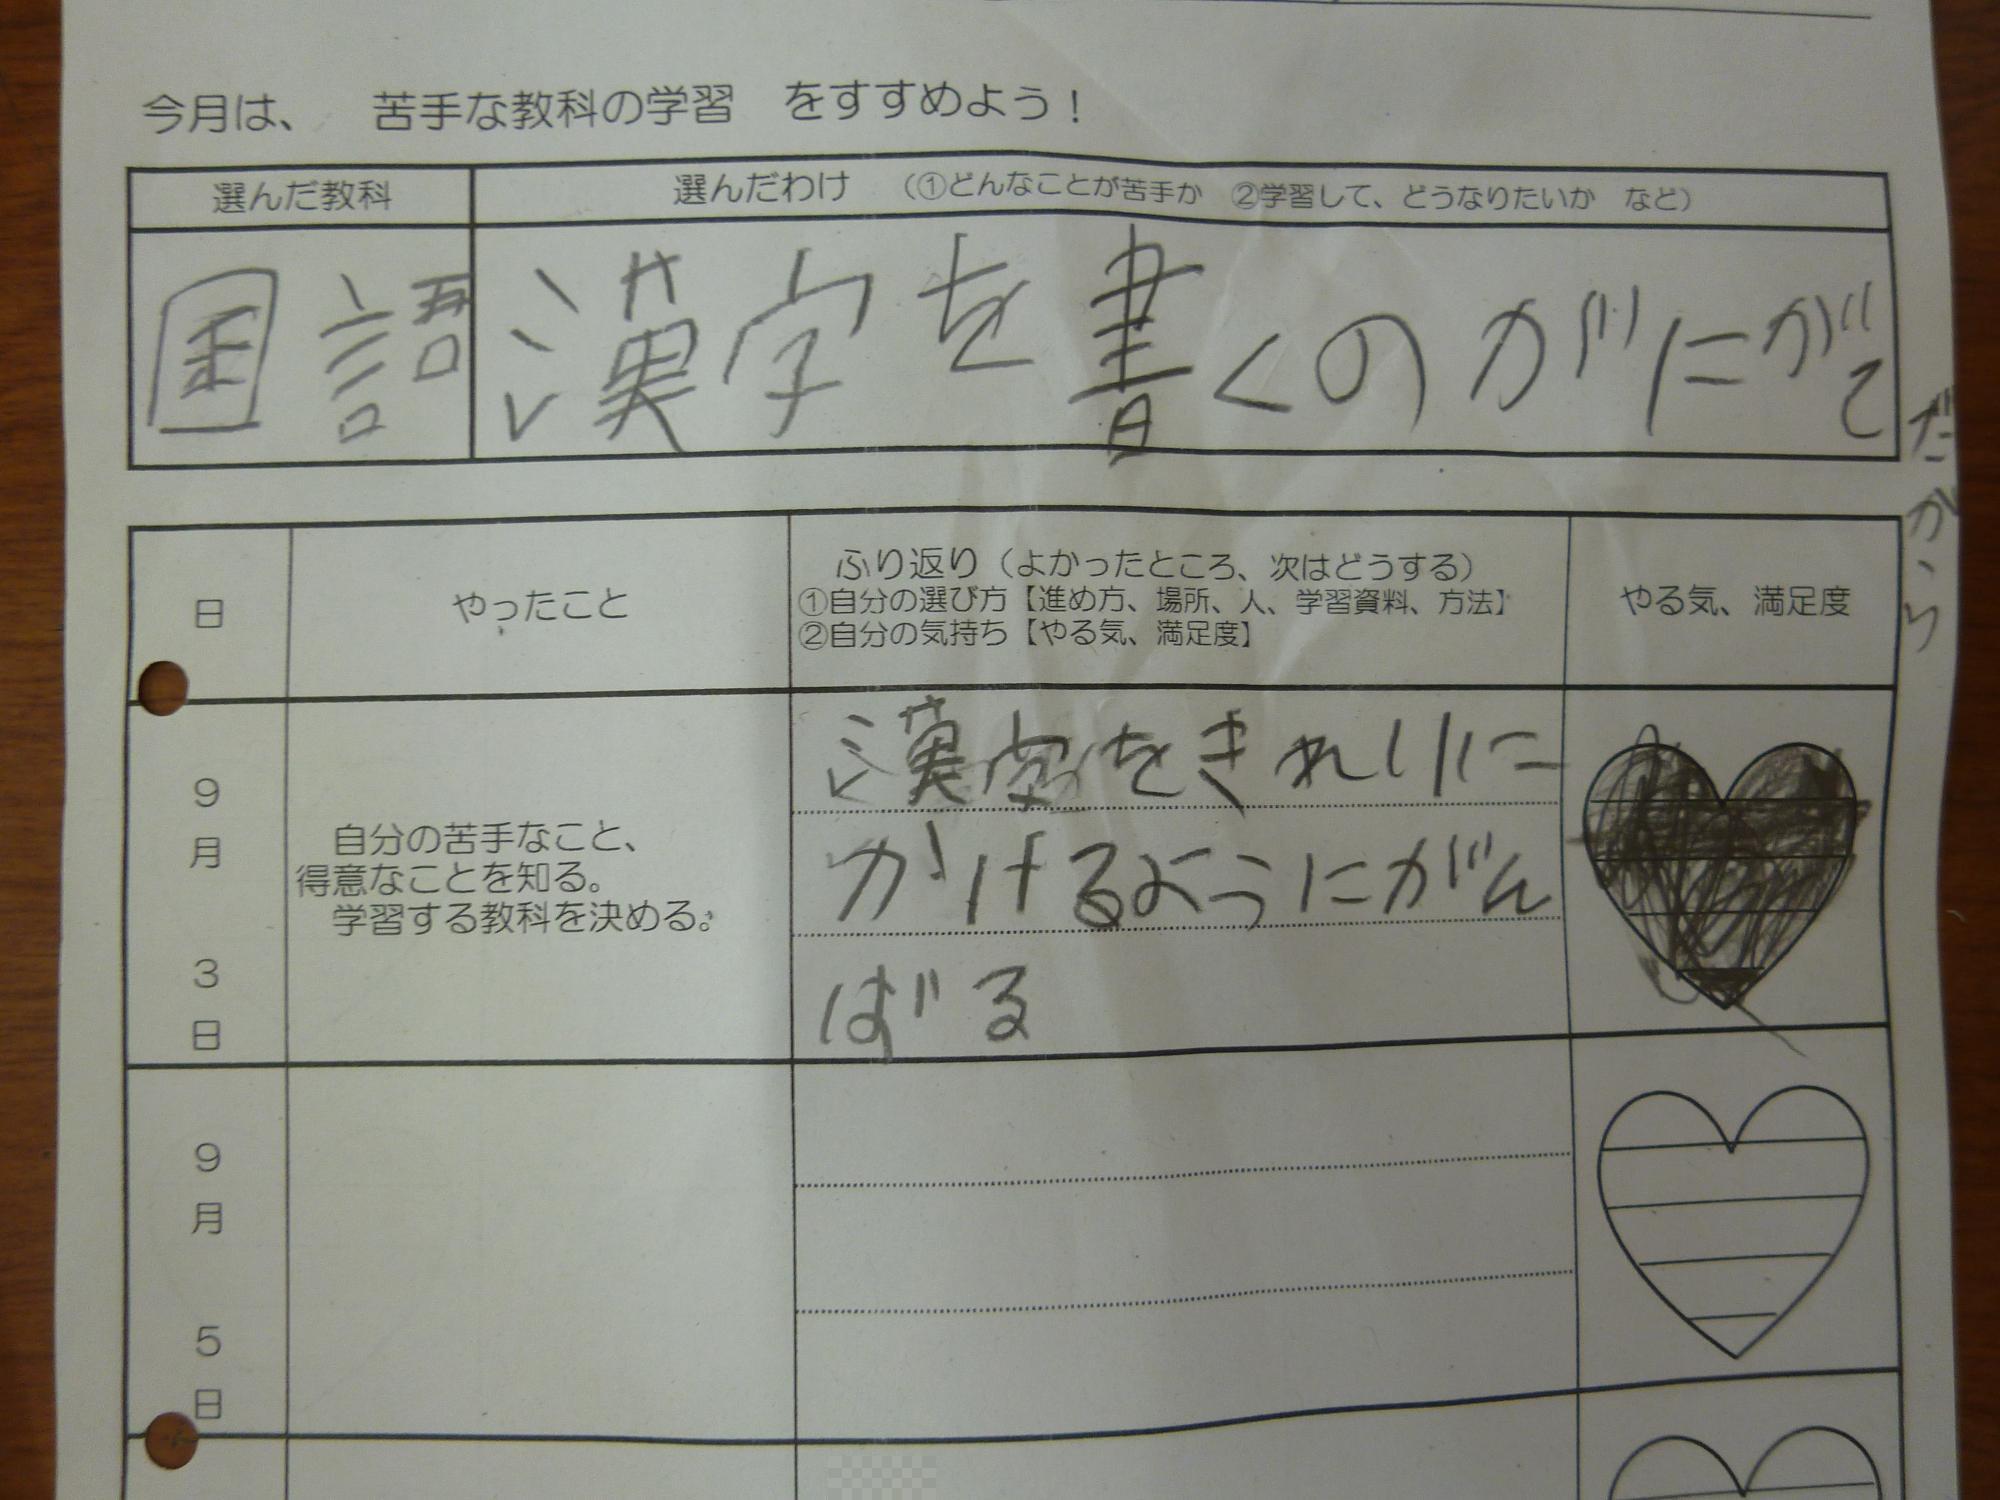 今月は、 苦手な教科の学習 をすすめよう！
選んだ教科
選んだわけ （①どんなことが苦手か ②学習して、どうなりたいか など）
国語
漢字を書くのがにがて
だから
日
やったこと
ふり返り（よかったところ、次はどうする）
①自分の選び方【進め方、場所、人、学習資料、方法】
②自分の気持ち【やる気、満足度】
やる気、満足度
9月3日
自分の苦手なこと、
得意なことを知る。
学習する教科を決める。
漢字をきれいに
かけるようにがん
ばる
9月5日